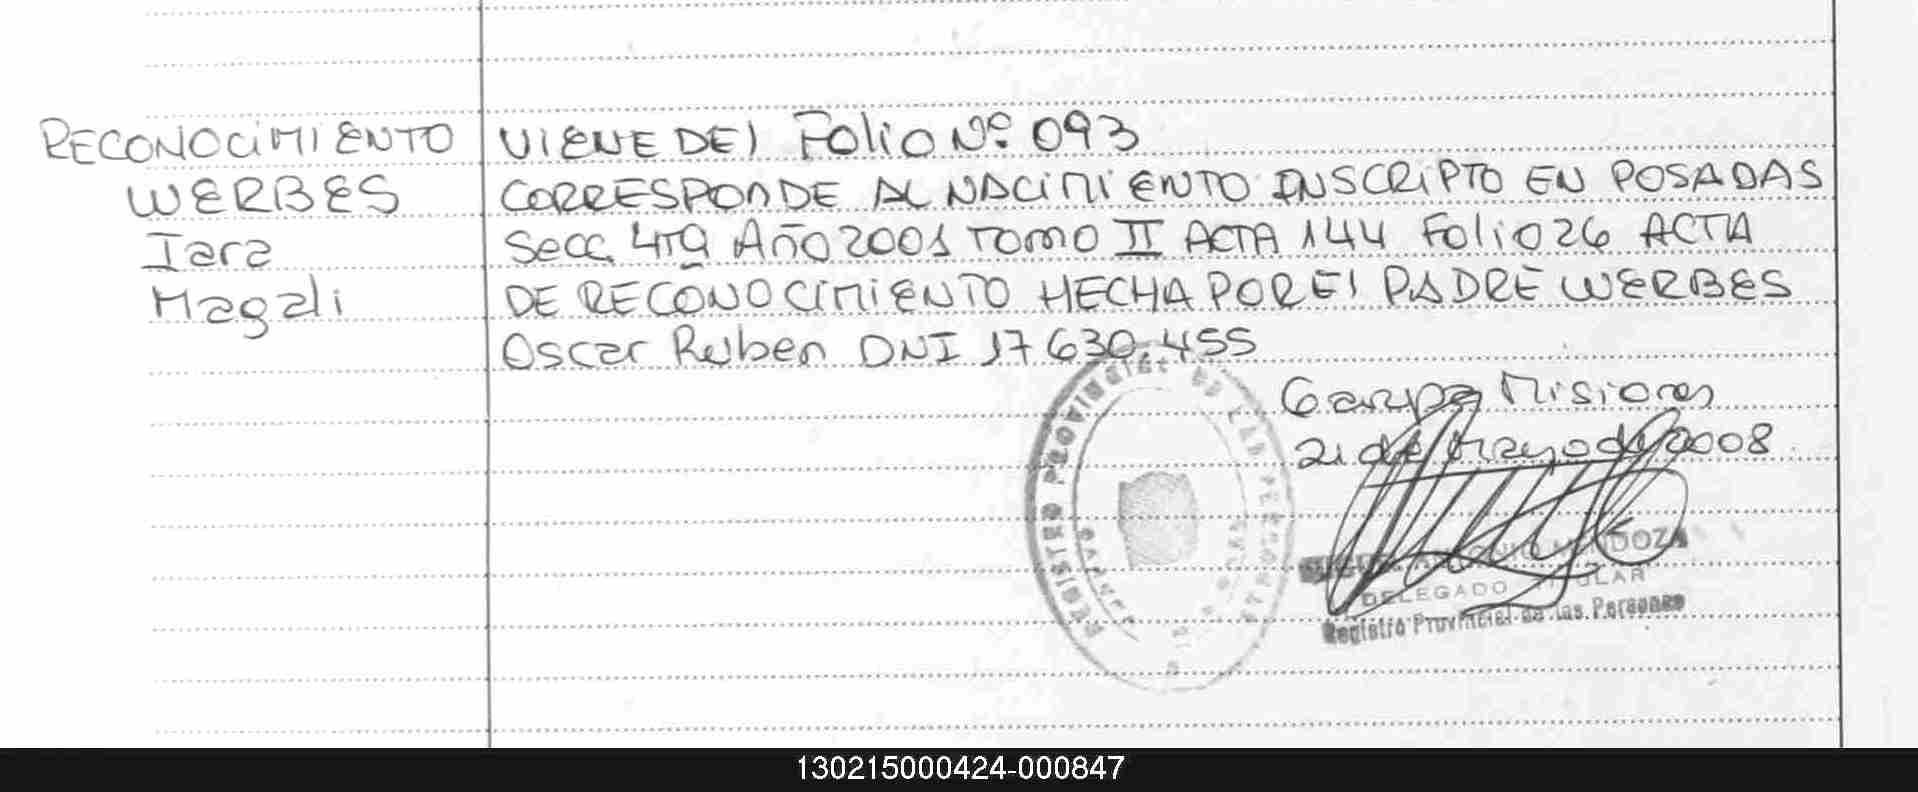 RECONOCIMIENTO
WERBES
Iara
Magali
VIENE DEL Folio Nº 093
CORRESPONDE AL NACIMIENTO INSCRIPTO EN POSADAS
Secc. 4ta Año 2001 Tomo II ACTA 144 Folio 26 ACTA
DE RECONOCIMIENTO HECHA POR El PADRE WERBES
Oscar Ruben DNI 17 630.455
Garupa Misiones
21 de Mayo de 2008
REGISTRO PROVINCIAL DE LAS PERSONAS
ANTONIO MENDOZA
DELEGADO TITULAR
Registro Provincial de las Personas
130215000424-000847